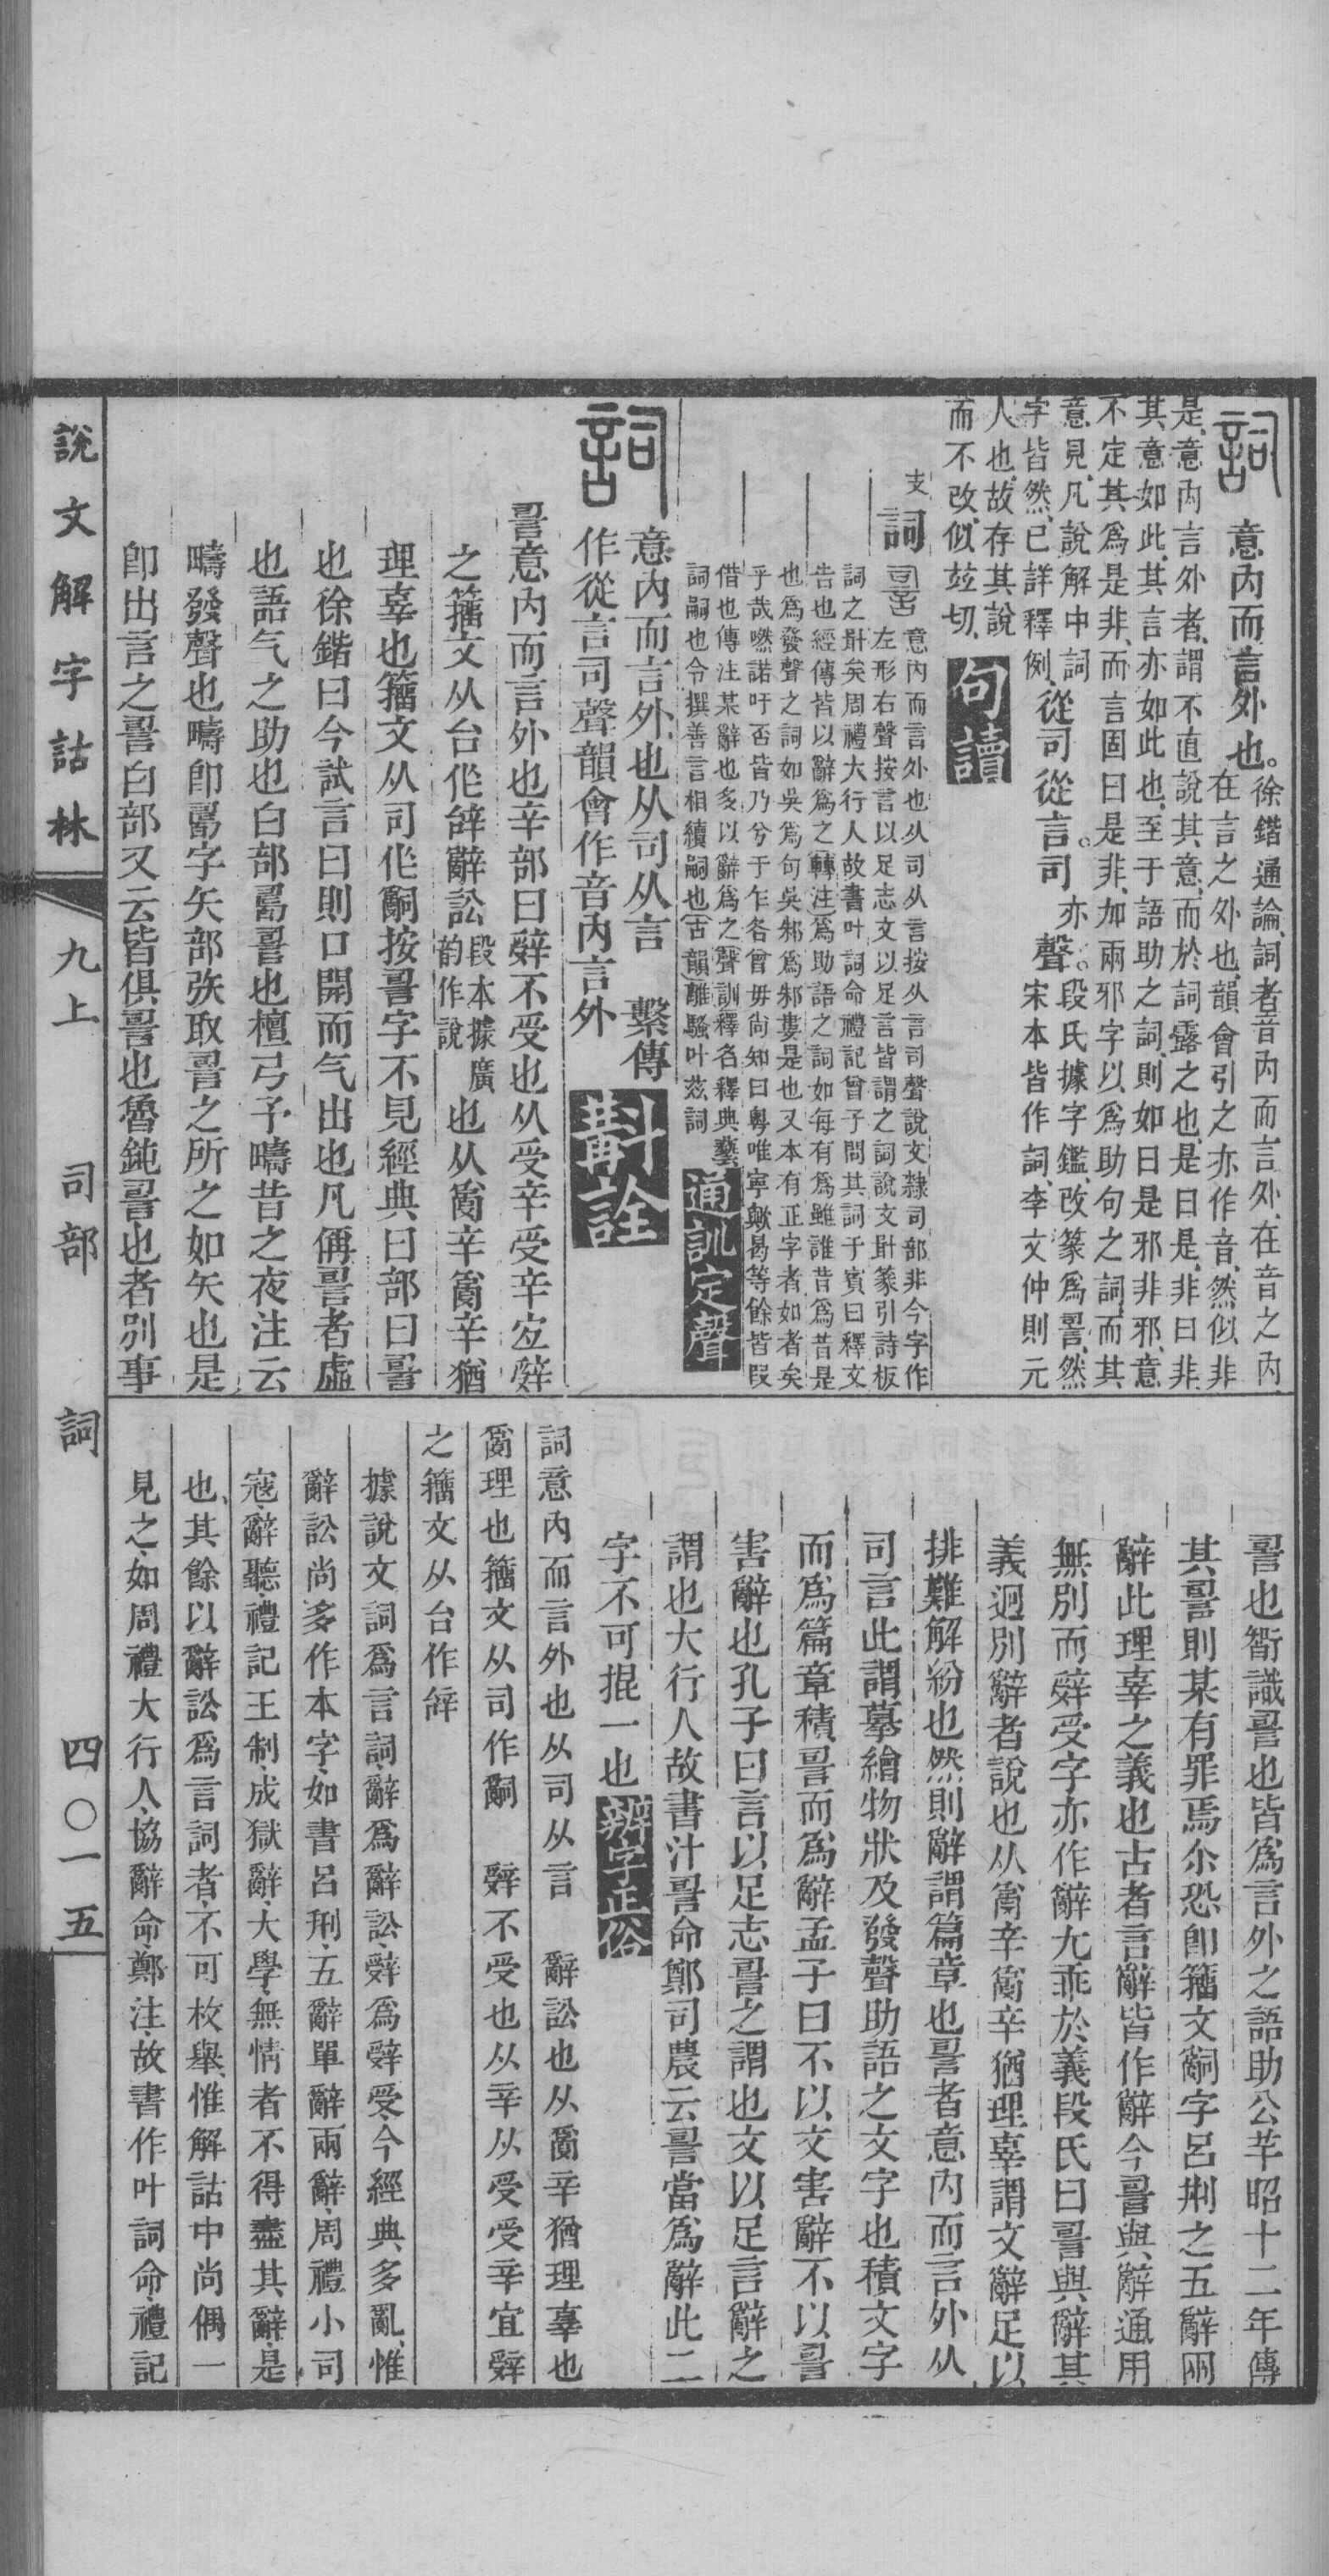 意內而言外也。徐鍇通論、詞者音內而言外、在音之內、
在言之外也、韻會引之、亦作音、然似非
是、意內言外者、謂不直說其意、而於詞露之也、是曰是、非曰非、
其意如此、其言亦如此也、至于語助之詞、則如曰是邪非邪、意
不定其爲是非、而言固曰是非、加兩邪字以爲助句之詞、而其
意見、凡說解中詞
字皆然、已詳釋例、從司從言。司亦聲。段氏據字鑑、改篆爲䛐、然
宋本皆作詞、李文仲則元
人也、故存其說
而不改、似玆切、句讀
支詞䛐意內而言外也从司从言按从言司聲說文隸司部非今字作
左形右聲按言以足志文以足言皆謂之詞說文𠱾篆引詩板
詞之𠱾矣周禮大行人故書叶詞命禮記曾子問其詞于賓曰釋文
告也經傳皆以辭爲之轉注爲助語之詞如每有爲雖誰昔爲昔是
也爲發聲之詞如吳爲句吳邾爲邾婁是也又本有正字者如者矣
乎哉嘫諾吁否皆乃兮于乍各曾毋尙知曰粤唯寧歟曷等餘皆叚
借也傳注某辭也多以辭爲之聲訓釋名釋典藝
詞嗣也令撰善言相續嗣也古韻離騷叶茲詞通訓定聲
意內而言外也从司从言　繫傳
作從言司聲韻會作音內言外斠詮
䛐意內而言外也辛部曰辤不受也从受辛受辛宐辤
之籒文从台作辝辭訟段本據廣
韵作說也从𤔔辛𤔔辛猶
理辜也籒文从司作嗣按䛐字不見經典曰部曰䛐
也徐鍇曰今試言曰則口開而气出也凡偁䛐者虛
也語气之助也白部𠷎䛐也檀弓予疇昔之夜注云
疇發聲也疇卽𠷎字矢部矤取䛐之所之如矢也是
卽出言之䛐白部又云皆俱䛐也魯鈍䛐也者別事
䛐也𥏼識䛐也皆爲言外之語助公羊昭十二年傳
其䛐則某有罪焉尒恐卽籒文嗣字呂荆之五辭网
辭此理辜之義也古者言辭皆作辭今䛐與辭通用
無別而辤受字亦作辭尤乖於義段氏曰䛐與辭其
義迥別辭者說也从𤔔辛𤔔辛猶理辜謂文辭足以
排難解紛也然則辭謂篇章也䛐者意內而言外从
司言此謂摹繪物狀及發聲助語之文字也積文字
而爲篇章積䛐而爲辭孟子曰不以文害辭不以䛐
害辭也孔子曰言以足志䛐之謂也文以足言辭之
謂也大行人故書汁䛐命鄭司農云䛐當爲辭此二
字不可掍一也辨字正俗
詞意內而言外也从司从言　辭訟也从𤔔辛猶理辜也
𤔔理也籒文从司作嗣　辤不受也从辛从受受辛宜辤
之籒文从台作辝
據說文、詞爲言詞、辭爲辭訟、辤爲辤受、今經典多亂、惟
辭訟尚多作本字、如書呂刑、五辭單辭兩辭、周禮小司
寇、辭聽、禮記王制、成獄辭、大學、無情者不得盡其辭、是
也、其餘以辭訟爲言詞者、不可枚舉、惟解詁中尚偶一
見之、如周禮大行人、協辭命、鄭注、故書作叶詞命、禮記
說文解字詁林　九上　司部　詞　四〇一五